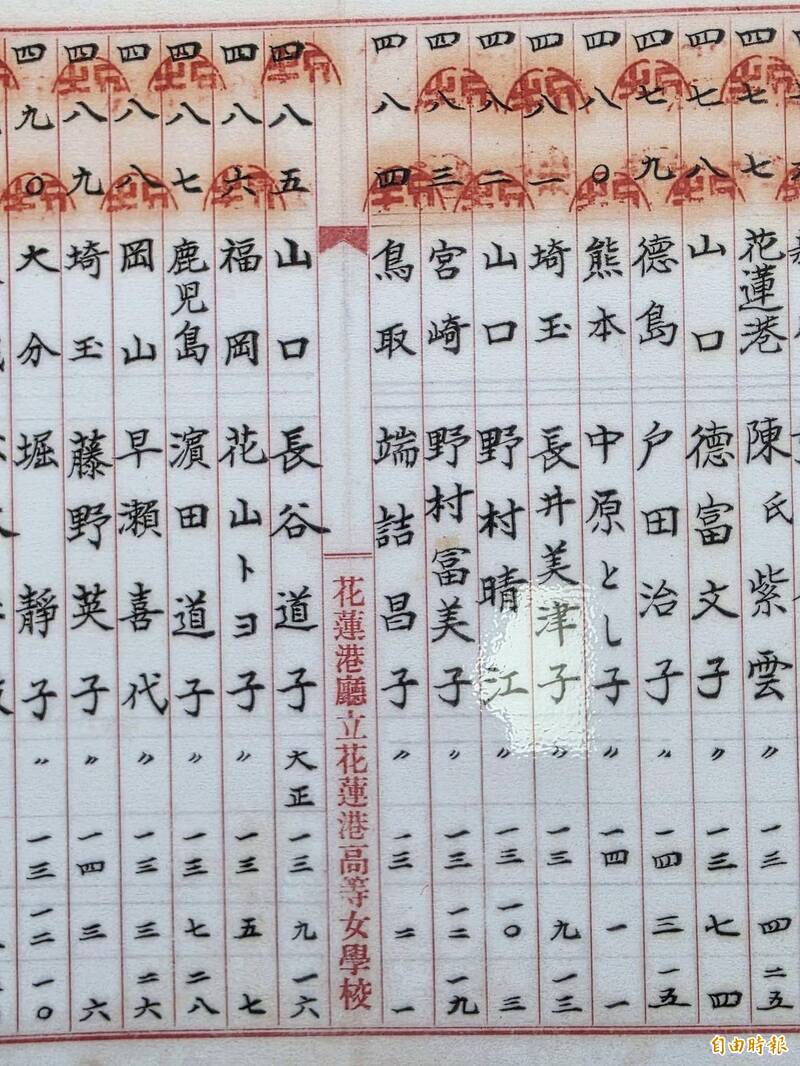 四七七 花蓮港 陳氏紫雲 〃 一三 四 二五
四七八 山口 德富文子 〃 一三 七 四
四七九 德島 戶田治子 〃 一四 三 一五
四八〇 熊本 中原とし子 〃 一四 一 一
四八一 埼玉 長井美津子 〃 一三 九 一三
四八二 山口 野村晴江 〃 一三 一〇 三
四八三 宮崎 野村冨美子 〃 一三 一二 一九
四八四 鳥取 端詰昌子 〃 一三 二 一
花蓮港廳立花蓮港高等女學校
四八五 山口 長谷道子 大正 一三 九 一六
四八六 福岡 花山トヨ子 〃 一三 五 七
四八七 鹿児島 濱田道子 〃 一三 七 二八
四八八 岡山 早瀬喜代 〃 一三 三 二六
四八九 埼玉 藤野英子 〃 一四 三 六
四九〇 大分 堀靜子 〃 一三 一二 一〇
自由時報